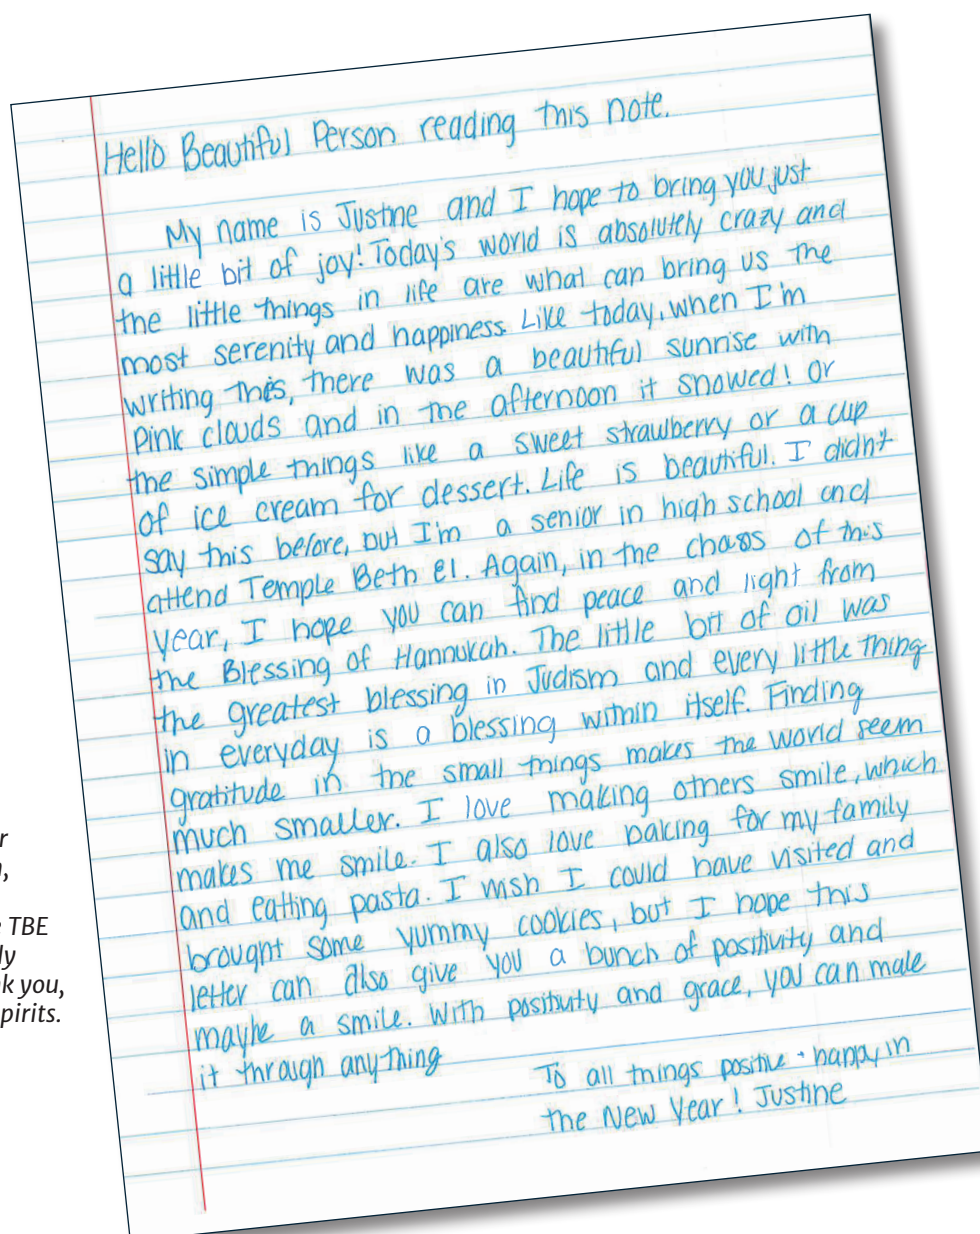 Hello Beautiful Person reading this note.
My name is Justine and I hope to bring you just
a little bit of joy! Today's world is absolutely crazy and
the little things in life are what can bring us the
most serenity and happiness. Like today, when I'm
writing this, there was a beautiful sunrise with
pink clouds and in the afternoon it snowed! Or
the simple things like a sweet strawberry or a cup
of ice cream for dessert. Life is beautiful. I didn't
say this before, but I'm a senior in high school and
attend Temple Beth El. Again, in the chaos of this
year, I hope you can find peace and light from
the Blessing of Hannukah. The little bit of oil was
the greatest blessing in Judism and every little thing
in everyday is a blessing within itself. Finding
gratitude in the small things makes the world seem
much smaller. I love making others smile, which
makes me smile. I also love baking for my family
and eatting pasta. I wish I could have visited and
brought some yummy cookies, but I hope this
letter can also give you a bunch of positivity and
maybe a smile. With positivity and grace, you can make
it through anything
To all things positive + happy in
the New Year! Justine
r
,
TBE
ly
k you,
pirits.